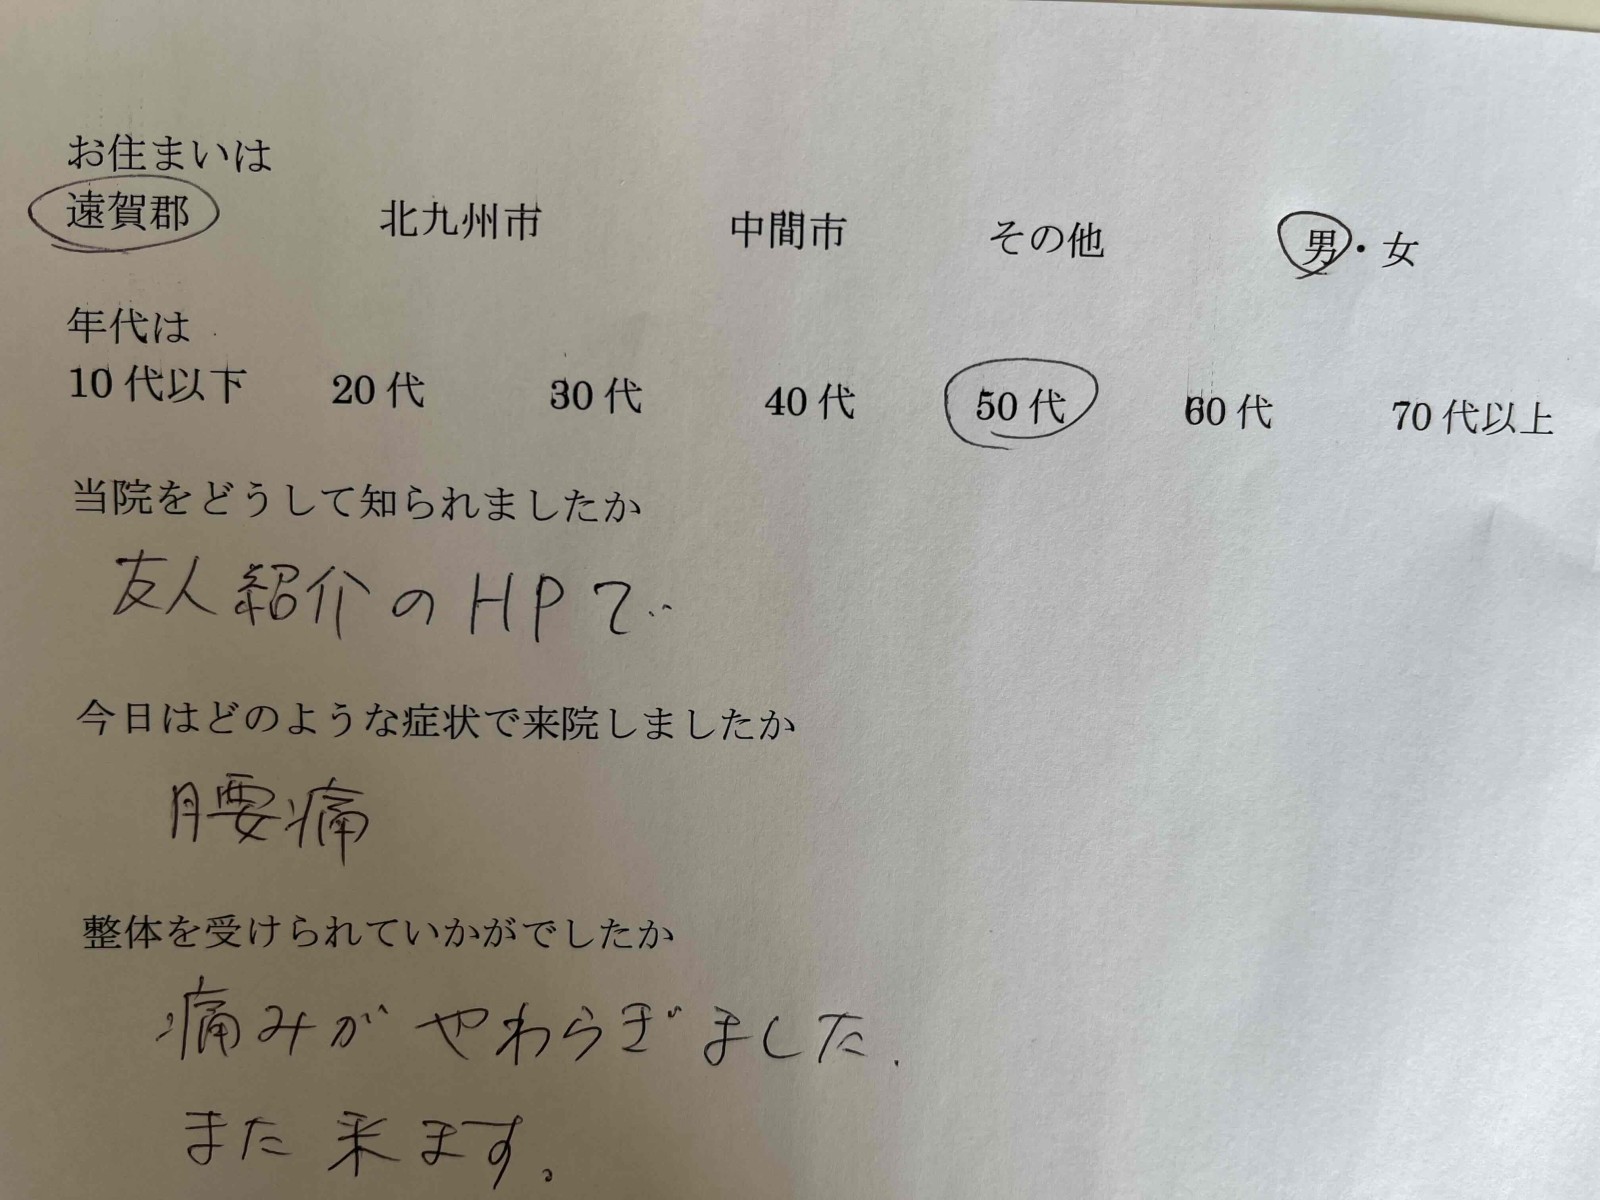 お住まいは
遠賀郡 北九州市 中間市 その他 男・女
年代は
10代以下 20代 30代 40代 50代 60代 70代以上
当院をどうして知られましたか
友人紹介のHPで
今日はどのような症状で来院しましたか
腰痛
整体を受けられていかがでしたか
痛みがやわらぎました.
また来ます。